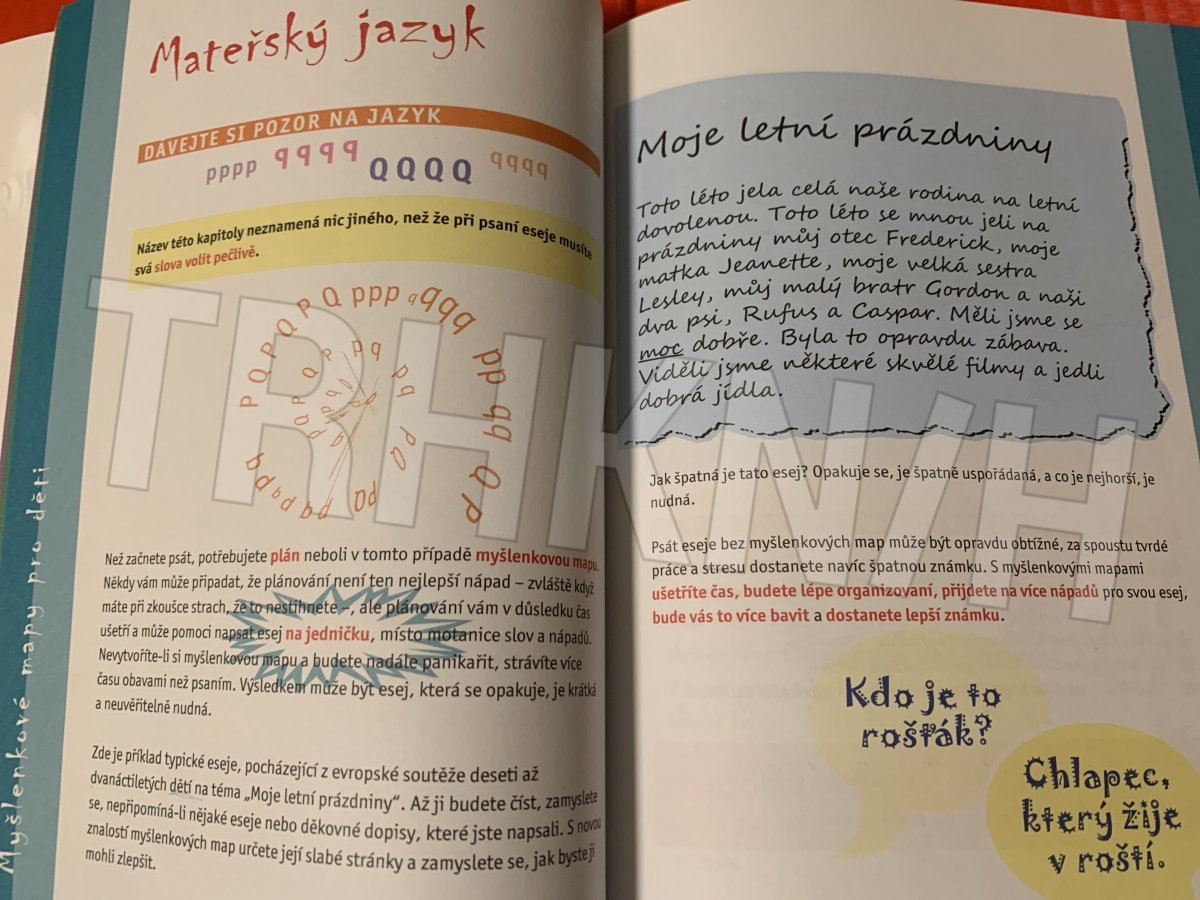 Mateřský jazyk
DÁVEJTE SI POZOR NA JAZYK
pppp qqqq QQQQ qqqq
Název této kapitoly neznamená nic jiného, než že při psaní eseje musíte
svá slova volit pečlivě.
Než začnete psát, potřebujete plán neboli v tomto případě myšlenkovou mapu.
Někdy vám může připadat, že plánování není ten nejlepší nápad – zvláště když
máte při zkoušce strach, že to nestihnete –, ale plánování vám v důsledku čas
ušetří a může pomoci napsat esej na jedničku, místo motanice slov a nápadů.
Nevytvoříte-li si myšlenkovou mapu a budete nadále panikařit, strávíte více
času obavami než psaním. Výsledkem může být esej, která se opakuje, je krátká
a neuvěřitelně nudná.
Zde je příklad typické eseje, pocházející z evropské soutěže deseti až
dvanáctiletých dětí na téma „Moje letní prázdniny“. Až ji budete číst, zamyslete
se, nepřipomíná-li nějaké eseje nebo děkovné dopisy, které jste napsali. S novou
znalostí myšlenkových map určete její slabé stránky a zamyslete se, jak byste ji
mohli zlepšit.
Myšlenkové mapy pro děti
Moje letní prázdniny
Toto léto jela celá naše rodina na letní
dovolenou. Toto léto se mnou jeli na
prázdniny můj otec Frederick, moje
matka Jeanette, moje velká sestra
Lesley, můj malý bratr Gordon a naši
dva psi, Rufus a Caspar. Měli jsme se
moc dobře. Byla to opravdu zábava.
Viděli jsme některé skvělé filmy a jedli
dobrá jídla.
Jak špatná je tato esej? Opakuje se, je špatně uspořádaná, a co je nejhorší, je
nudná.
Psát eseje bez myšlenkových map může být opravdu obtížné, za spoustu tvrdé
práce a stresu dostanete navíc špatnou známku. S myšlenkovými mapami
ušetříte čas, budete lépe organizovaní, přijdete na více nápadů pro svou esej,
bude vás to více bavit a dostanete lepší známku.
Kdo je to
rošťák?
Chlapec,
který žije
v roští.
TRHKNIH